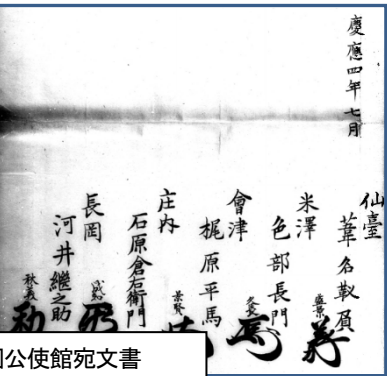 慶應四年七月
仙臺
葦名靱負
米澤
色部長門
會津
梶原平馬
庄内
石原倉右衛門
長岡
河井繼之助
公使館宛文書